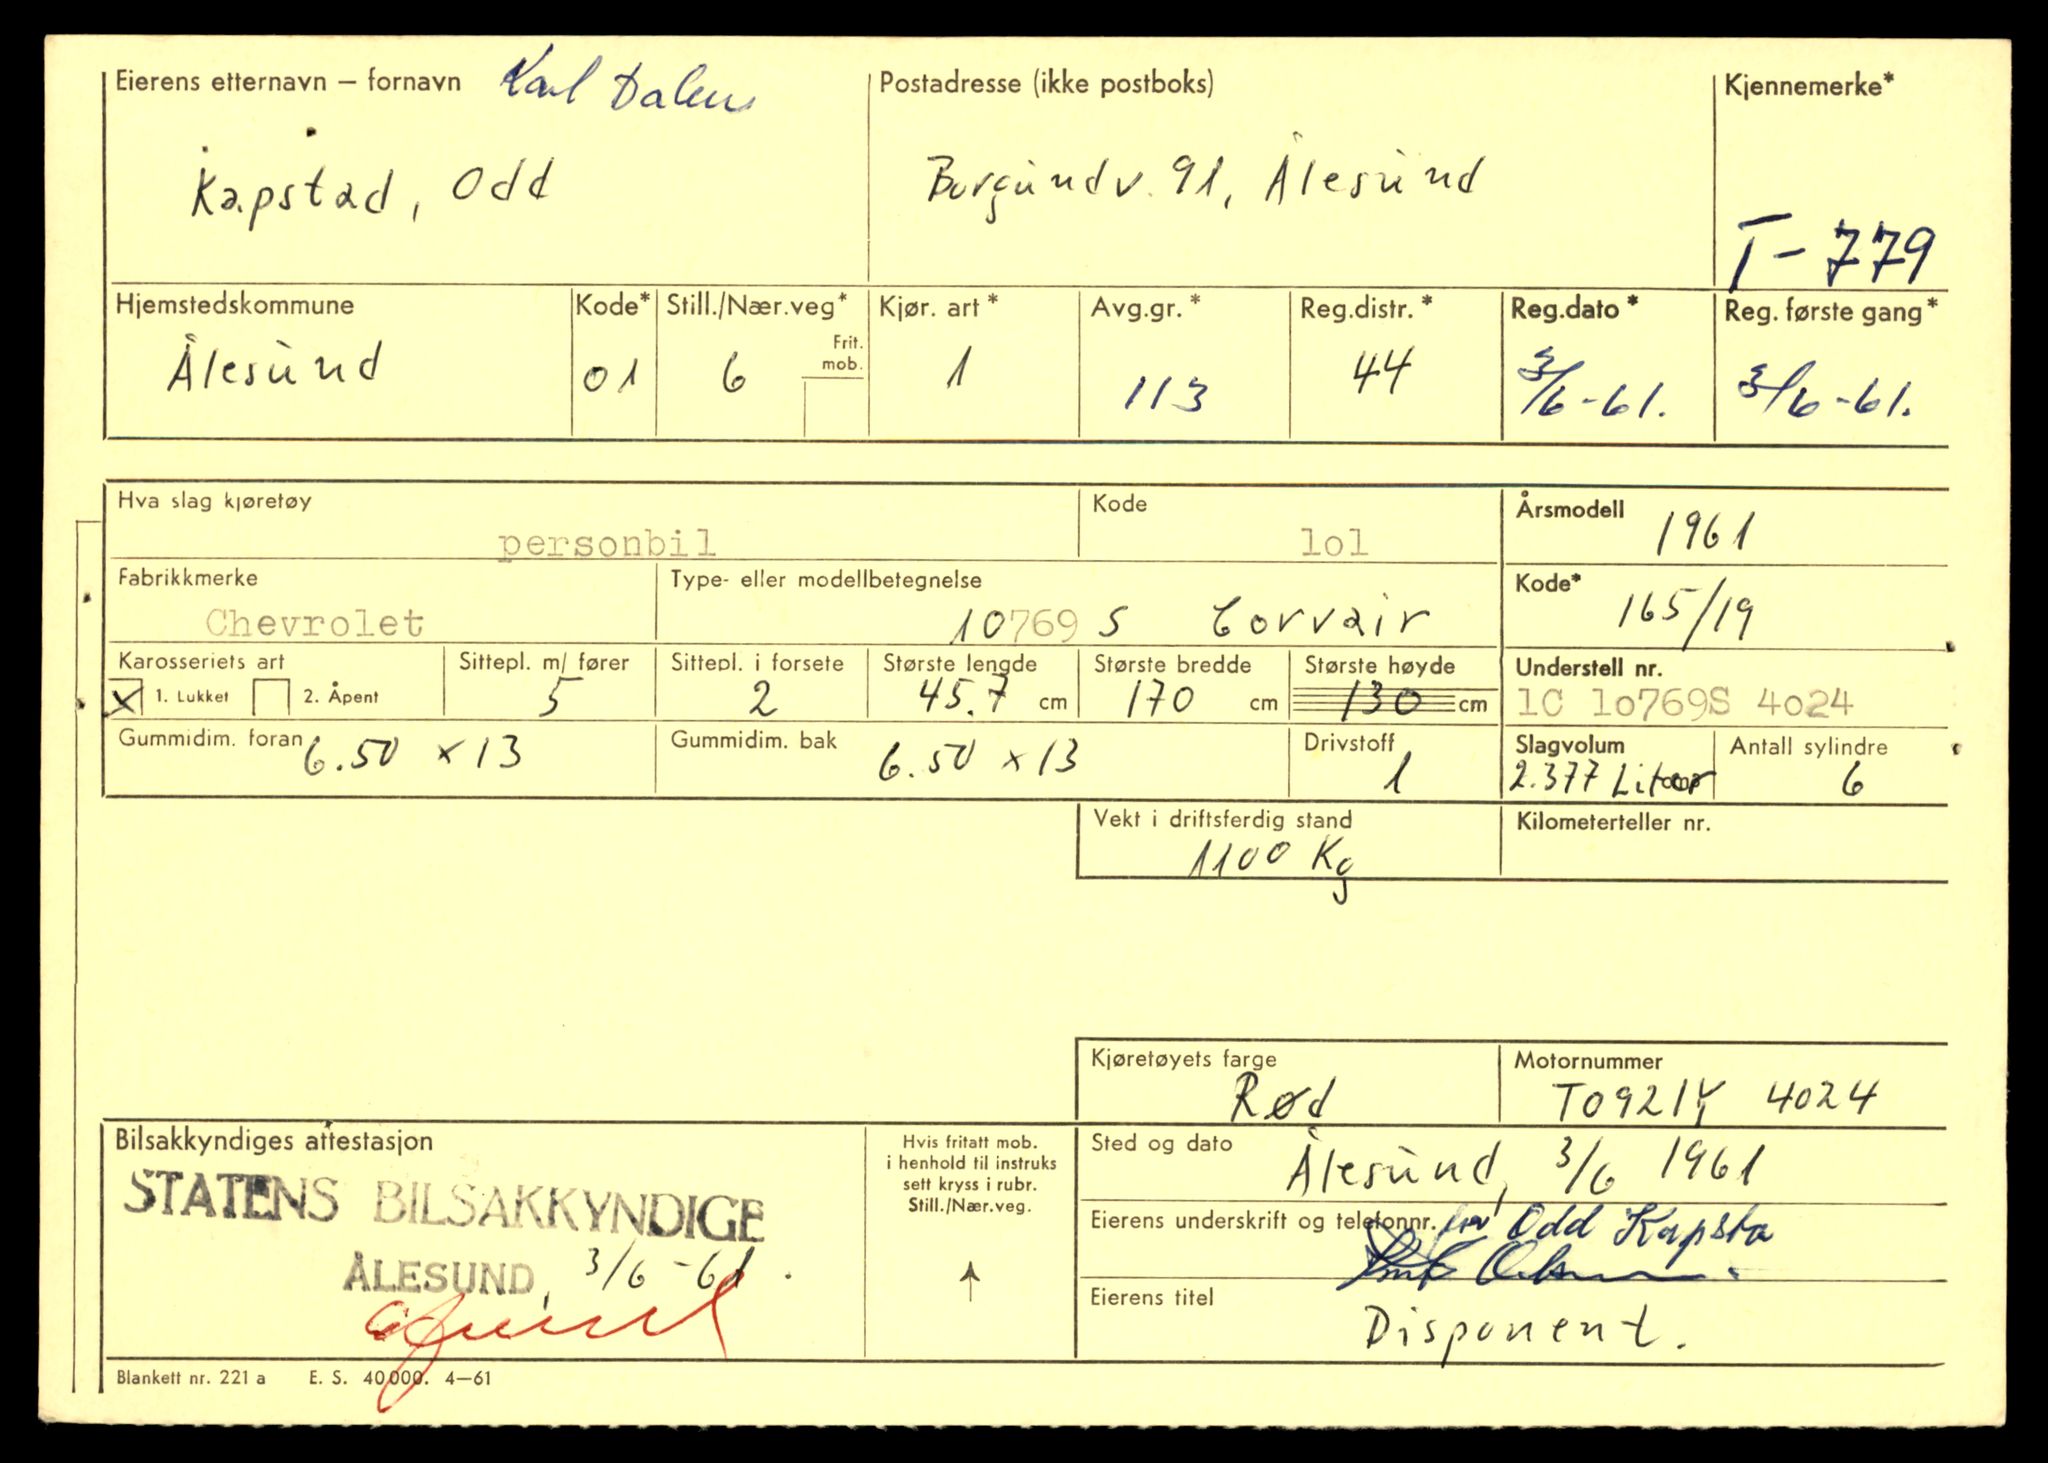 Eierens etternavn – fornavn Karl Dalen
Kapstad, Odd
Postadresse (ikke postboks)
Borgundv. 91, Ålesund
Kjennemerke*
T-779
Hjemstedskommune
Ålesund
Kode*
01
Still./Nær.veg*
6
Frit.
mob.
Kjør. art*
1
Avg.gr.*
113
Reg.distr.*
44
Reg.dato*
3/6-61.
Reg. første gang*
3/6-61.
Hva slag kjøretøy
personbil
Kode
lol
Årsmodell
1961
Fabrikkmerke
Chevrolet
Type- eller modellbetegnelse
10769 S Corvair
Kode*
165/19
Karosseriets art
X 1. Lukket 2. Åpent
Sittepl. m/ fører
5
Sittepl. i forsete
2
Største lengde
45.7 cm
Største bredde
170 cm
Største høyde
130 cm
Understell nr.
1C 10769S 4024
Gummidim. foran 6.50 x 13
Gummidim. bak 6.50 x 13
Drivstoff
1
Slagvolum
2.377 Liter
Antall sylindre
6
Vekt i driftsferdig stand
1100 Kg
Kilometerteller nr.
Kjøretøyets farge
Rød
Motornummer
T0921Y 4024
Bilsakkyndiges attestasjon
STATENS BILSAKKYNDIGE
ÅLESUND, 3/6-61.
Hvis fritatt mob.
i henhold til instruks
sett kryss i rubr.
Still./Nær.veg.
Sted og dato
Ålesund, 3/6 1961
Eierens underskrift og telefonnr. for Odd Kapsta
Eierens titel
Disponent.
Blankett nr. 221 a E. S. 40 000. 4–61